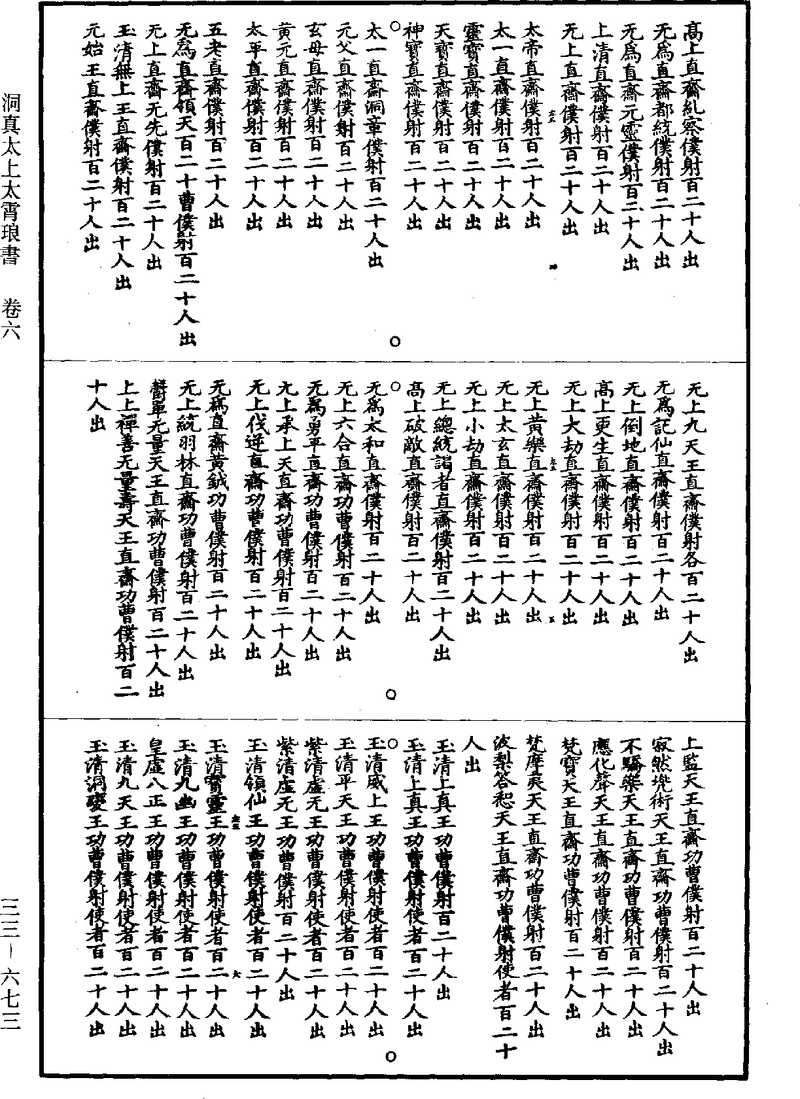 高上直齋糺察僕射百二十人出
无爲直齋都統僕射百二十人出
无爲直齋元靈僕射百二十人出
上清直齋僕射百二十人出
无上直齋僕射百二十人出
太帝直齋僕射百二十人出
太一直齋僕射百二十人出
靈寶直齋僕射百二十人出
天寶直齋僕射百二十人出
神寶直齋僕射百二十人出
太一直齋洞章僕射百二十人出
元父直齋僕射百二十人出
玄母直齋僕射百二十人出
黃元直齋僕射百二十人出
太平直齋僕射百二十人出
五老直齋僕射百二十人出
无爲直齋領天百二十曹僕射百二十人出
无上直齋无先僕射百二十人出
玉清無上王直齋僕射百二十人出
元始王直齋僕射百二十人出
无上九天王直齋僕射各百二十人出
无爲記仙直齋僕射百二十人出
无上倒地直齋僕射百二十人出
高上更生直齋僕射百二十人出
无上大劫直齋僕射百二十人出
无上黃樂直齋僕射百二十人出
无上太玄直齋僕射百二十人出
无上小劫直齋僕射百二十人出
无上總統謁者直齋僕射百二十人出
高上破敵直齋僕射百二十人出
无爲太和直齋僕射百二十人出
无上六合直齋功曹僕射百二十人出
无爲勇平直齋功曹僕射百二十人出
九上承上天直齋功曹僕射百二十人出
无上伐逆直齋功曹僕射百二十人出
无爲直齋黃鉞功曹僕射百二十人出
无上統羽林直齋功曹僕射百二十人出
鬱單无量天王直齋功曹僕射百二十人出
上上禪善无量壽天王直齋功曹僕射百二
十人出
上監天王直齋功曹僕射百二十人出
寂然兠術天王直齋功曹僕射百二十人出
不驕樂天王直齋功曹僕射百二十人出
應化聲天王直齋功曹僕射百二十人出
梵寶天王直齋功曹僕射百二十人出
梵摩夷天王直齋功曹僕射百二十人出
波梨答惒天王直齋功曹僕射使者百二十
人出
玉清上真王功曹僕射百二十人出
玉清上真王功曹僕射使者百二十人出
玉清威上王功曹僕射使者百二十人出
玉清平天王功曹僕射使者百二十人出
紫清虛元王功曹僕射使者百二十人出
紫清虛无王功曹僕射百二十人出
玉清領仙王功曹僕射使者百二十人出
玉清寶靈王功曹僕射使者百二十人出
玉清九幽王功曹僕射使者百二十人出
皇虛八正王功曹僕射使者百二十人出
玉清九天王功曹僕射使者百二十人出
玉清洞變王功曹僕射使者百二十人出
洞真太上太霄琅書 卷六
三三－六七三